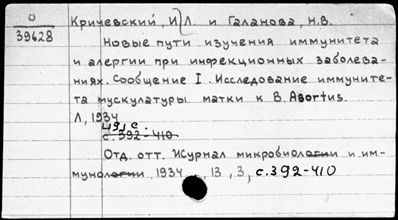 О
39628
Кричевский, И.Л. и Галанова, Н.В.
Новые пути изучения иммунитета
и алергии при инфекционных заболева-
ниях. Сообщение I. Исследование иммуните-
та мускулатуры матки к B. Abortus.
Л, 1934
419 с.
с. 392-410
Отд. отт. Журнал микробиологии и им-
мунологии 1934, 13, 3, с. 392-410